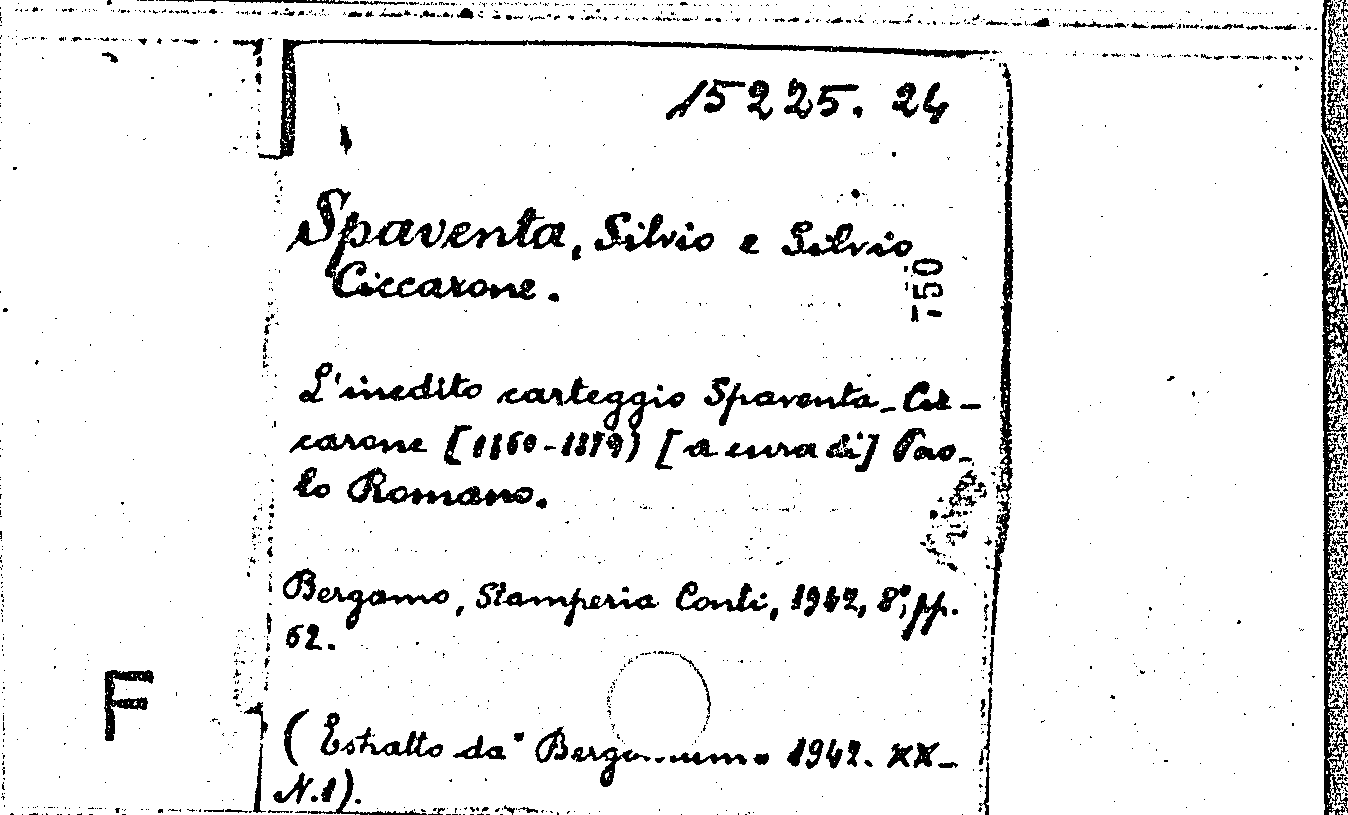 15225. 24
Spaventa, Silvio e Silvio
Ciccarone.
750
L'inedito carteggio Spaventa-Cic-
carone [1860-1879) [a cura di] Pao-
lo Romano.
Bergamo, Stamperia Conti, 1942, 8°, pp.
62.
F
(Estratto da "Bergomum" 1942. XX-
N.1).